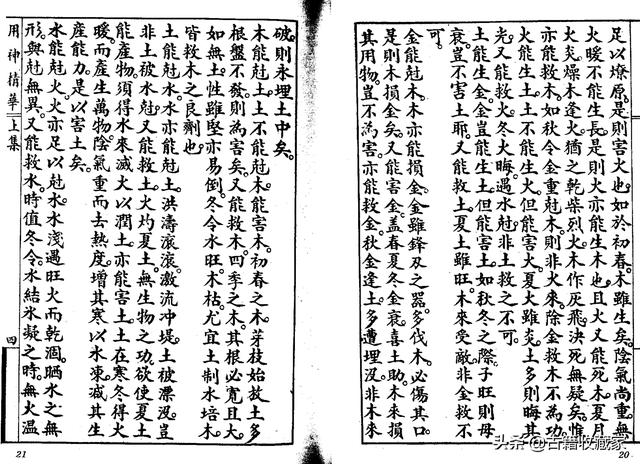 足以燎原。是則害火也。如於初春。木雖生矣。陰氣尚重。無
火暖不能生長。是則火亦能生木也。且火又能死木。夏月
火炎。燥木逢火。猶之乾柴烈火。木作灰飛。決死無疑矣。惟
亦能救木。如秋令金重尅木。則非火來除金救木不為功
火能生土。土不能生火。但能害火。夏火雖炎。土多則晦其
光。又能救火。冬火晦。遇水尅。非土救之不可。
土能生金。金豈能生土。但能害土。如秋冬之際。子旺則母
衰。豈不害土耶。又能救土。夏土雖旺。木來受敵。非金救不
可。
金能尅木。木亦能損金。金雖鋒及之器。多伐木必傷其口。
是則木損金矣。又能害金。蓋春夏冬金衰。喜土助。木來損
其用物。豈不為害。亦能救金。秋金逢土。多遭埋沒。非木來
20
破則永埋土中矣。
木能尅土。土不能尅木。能害木。初春之木。芽枝始故。土多
根盤不發。則為害矣。又能救木。四季之木。其根必寬且大。
如無土。性雖堅。亦易倒。冬令水旺木枯。尤宜土制水培木
皆救木之良劑也。
土能尅水。水亦能尅土。洪濤滾滾。激流冲堤。土被漂沒。豈
非土被水尅。又能救土。火灼夏土。無生物之功。欲使夏土
能產物。須得水來滅火以潤土。亦能害土。土在寒冬。得火
暖而產生萬物。陰氣重而去熱度。增其寒以水凍。減其生
產能力。是以害土矣。
水能尅火。火亦足以尅水。水淺遇旺火而乾涸。晒水之無
形。與尅無異。又能救水。時值冬令。水結氷凝之時。無火溫
用神精華 上集
四
21
头条@古籍收藏家